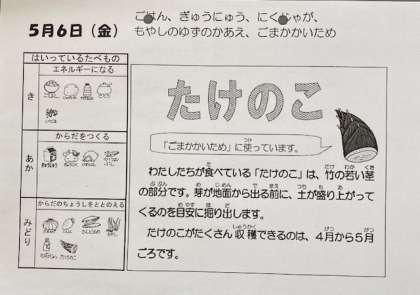 5月6日（金）
ごはん、ぎゅうにゅう、にくじゃが、
もやしのゆずのかあえ、ごまかかいため
はいっているたべもの
エネルギーになる
き
からだをつくる
あか
からだのちょうしをととのえる
みどり
たけのこ
「ごまかかいため」に使っています。
わたしたちが食べている「たけのこ」は、竹の若い茎
の部分です。芽が地面から出る前に、土が盛り上がって
くるのを目安に掘り出します。
たけのこがたくさん収穫できるのは、4月から5月
ごろです。